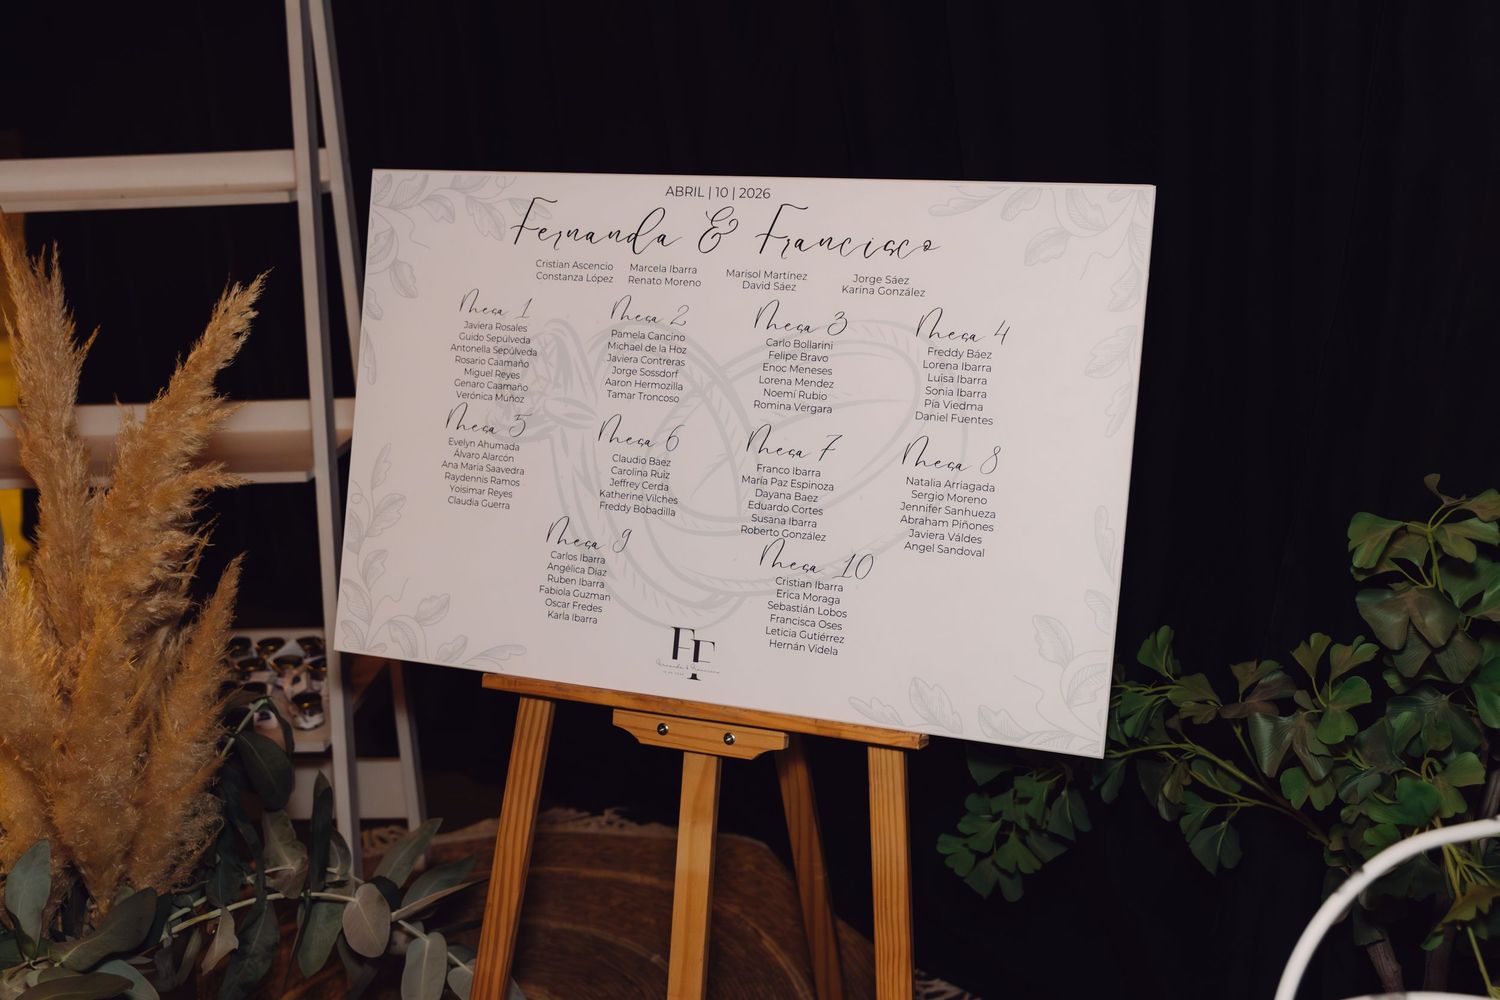 ABRIL | 10 | 2026
Fernanda & Francisco
Cristian Ascencio
Constanza López
Marcela Ibarra
Renato Moreno
Marisol Martínez
David Sáez
Jorge Sáez
Karina González
Mesa 1
Javiera Rosales
Guido Sepúlveda
Antonella Sepúlveda
Rosario Caamaño
Miguel Reyes
Genaro Caamaño
Verónica Múñoz
Mesa 2
Pamela Cancino
Michael de la Hoz
Javiera Contreras
Jorge Sossdorf
Aaron Hermozilla
Tamar Troncoso
Mesa 3
Carlo Bollarini
Felipe Bravo
Enoc Meneses
Lorena Mendez
Noemí Rubio
Romina Vergara
Mesa 4
Freddy Báez
Lorena Ibarra
Luisa Ibarra
Sonia Ibarra
Pía Viedma
Daniel Fuentes
Mesa 5
Evelyn Ahumada
Álvaro Alarcón
Ana María Saavedra
Raydennis Ramos
Yoisimar Reyes
Claudia Guerra
Mesa 6
Claudio Baez
Carolina Ruiz
Jeffrey Cerda
Katherine Vilches
Freddy Bobadilla
Mesa 7
Franco Ibarra
María Paz Espinoza
Dayana Baez
Eduardo Cortes
Susana Ibarra
Roberto González
Mesa 8
Natalia Arriagada
Sergio Moreno
Jennifer Sanhueza
Abraham Piñones
Javiera Váldes
Angel Sandoval
Mesa 9
Carlos Ibarra
Angélica Diaz
Ruben Ibarra
Fabiola Guzman
Oscar Fredes
Karla Ibarra
Mesa 10
Cristian Ibarra
Erica Moraga
Sebastián Lobos
Francisca Oses
Leticia Gutiérrez
Hernán Videla
FF
Fernanda & Francisco